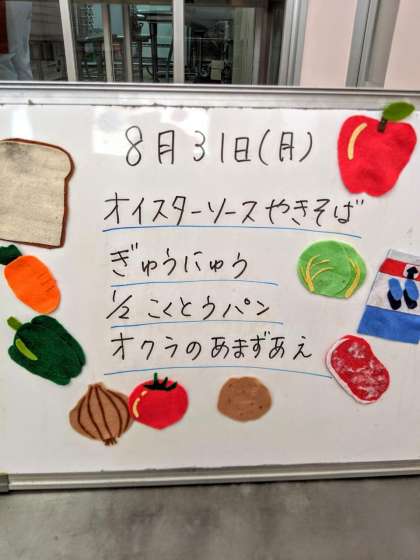 8月31日(月)
オイスターソースやきそば
ぎゅうにゅう
1/2 こくとうパン
オクラのあまずあえ